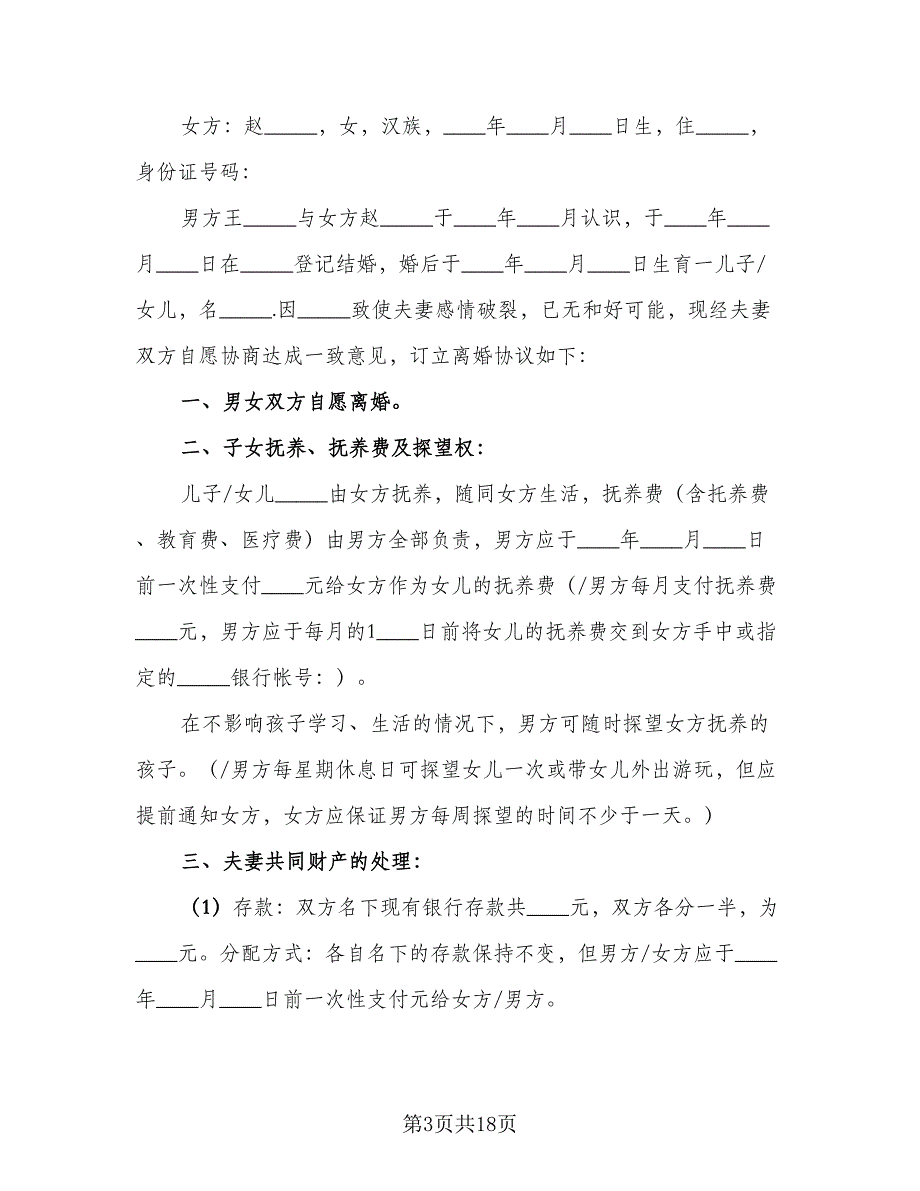 女方：赵_____，女，汉族，____年____月____日生，住_____，
身份证号码：
男方王_____与女方赵_____于____年____月认识，于____年____
月____日在_____登记结婚，婚后于____年____月____日生育一儿子/
女儿，名_____.因_____致使夫妻感情破裂，已无和好可能，现经夫妻
双方自愿协商达成一致意见，订立离婚协议如下：
一、男女双方自愿离婚。
二、子女抚养、抚养费及探望权：
儿子/女儿_____由女方抚养，随同女方生活，抚养费（含托养费
、教育费、医疗费）由男方全部负责，男方应于____年____月____日
前一次性支付____元给女方作为女儿的抚养费（/男方每月支付抚养费
____元，男方应于每月的1____日前将女儿的抚养费交到女方手中或指
定的_____银行帐号：）。
在不影响孩子学习、生活的情况下，男方可随时探望女方抚养的
孩子。（/男方每星期休息日可探望女儿一次或带女儿外出游玩，但应
提前通知女方，女方应保证男方每周探望的时间不少于一天。）
三、夫妻共同财产的处理：
（1）存款：双方名下现有银行存款共____元，双方各分一半，为
____元。分配方式：各自名下的存款保持不变，但男方/女方应于____
年____月____日前一次性支付元给女方/男方。
第3页共18页